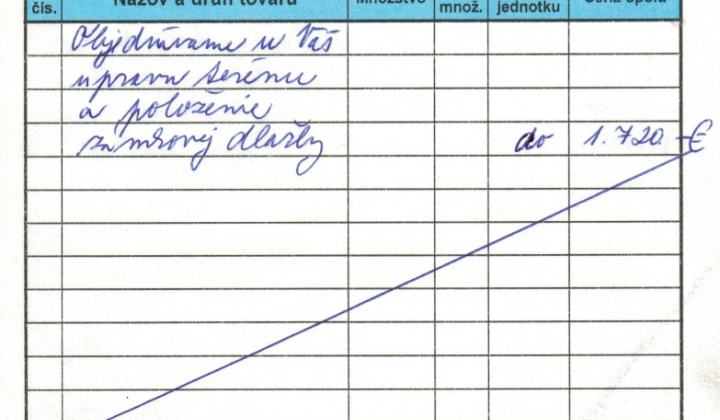 čís. Názov a druh tovaru Množstvo množ. jednotku Cena spolu
Objednávame u Vás
úpravu terénu
a položenie
zámkovej dlažby do 1.720 €